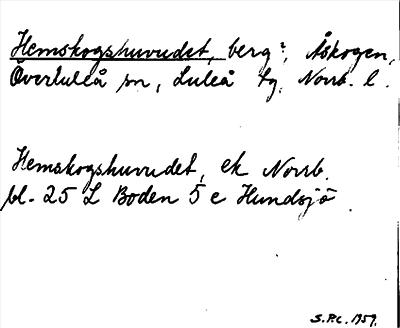 Hemskogshuvudet, berg?, Åskogen,
Överluleå sn, Luleå tg. Norrb. l.
Hemskogshuvudet, ek Norrb.
bl. 25 L Boden 5 e Hundsjö
S.P.C. 1959.